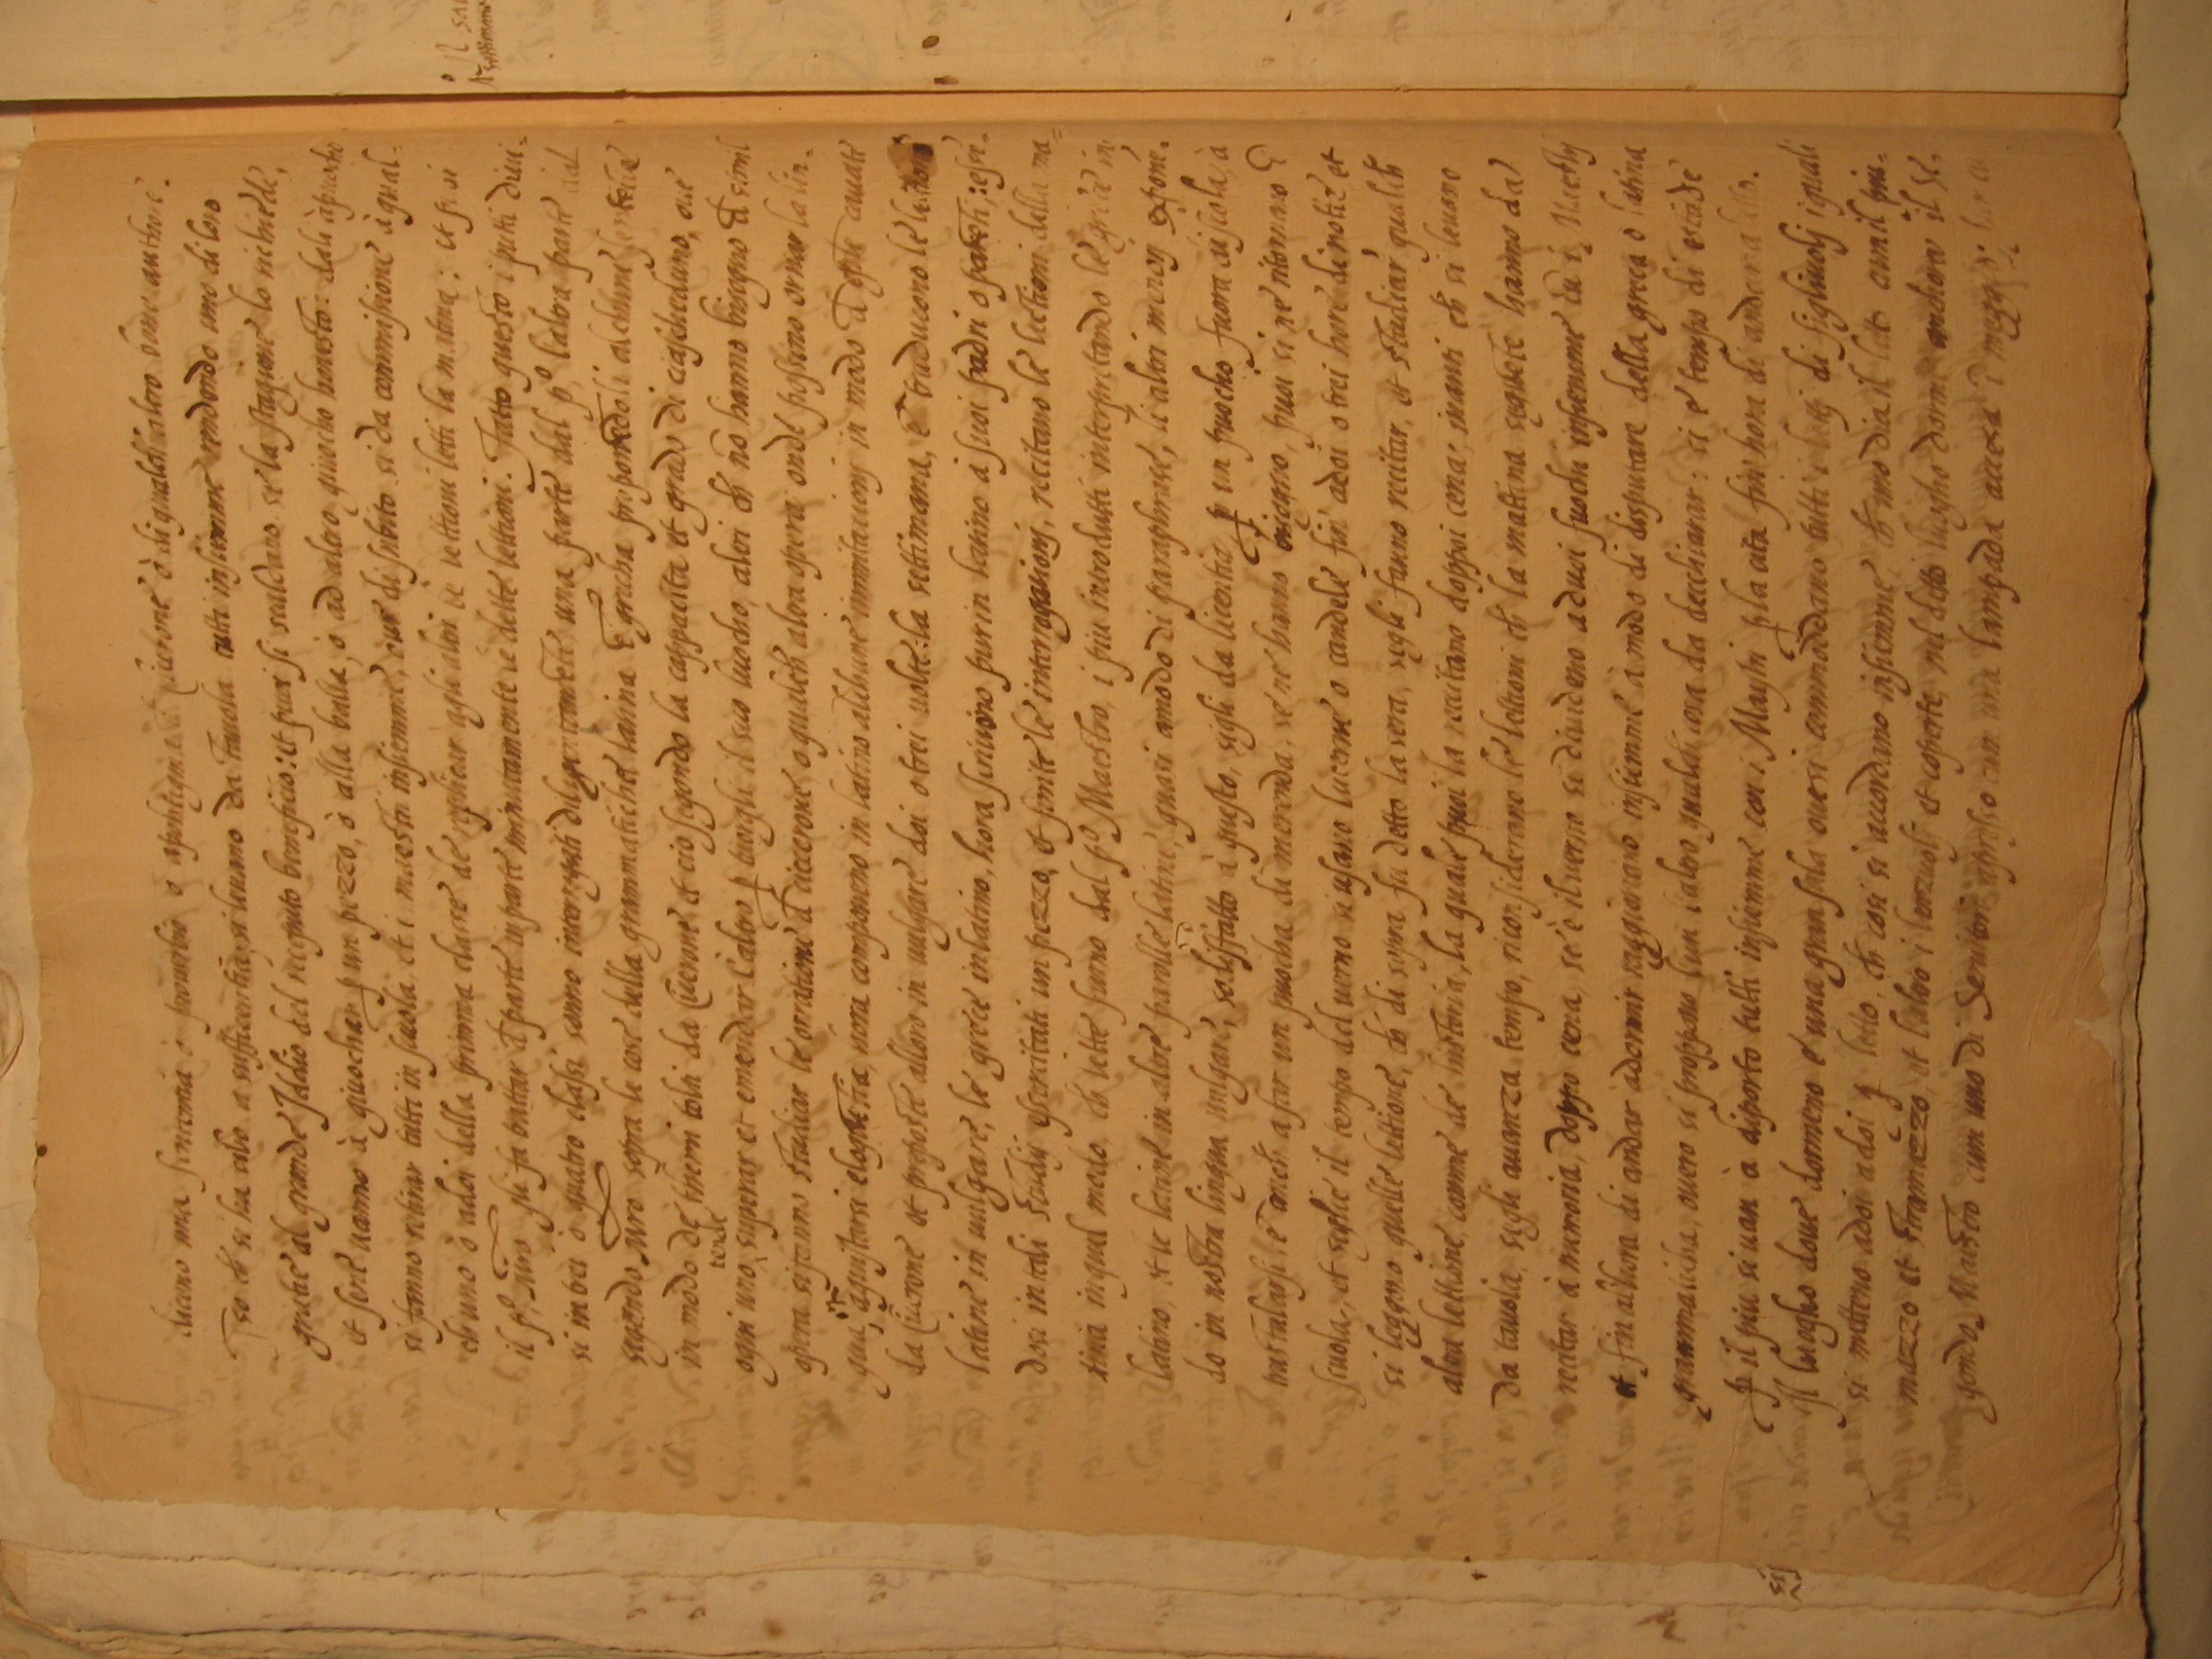 dicono una sententia o proverbio o apoftegma di Cicerone o di qualch' altro bone authore.
so ch si ha cibo a sufficientia, si levano da tavola tutti insiemme rendendo uno di loro
gratie al grande Iddio del receputo beneficio: et puoi si scaldano se la stagione lo richiede,
et sene vanno à giuochar p un pezzo, ò alla balla, o ad altro giuocho honesto: dali à puocho
si fanno retirar tutti in scuola et i maestri insiemme, our di subito si da commissione à qual-
ch uno ò adoi della primma classe de replicar agli altri le lettioni letti la matina: et puoi
il pº Mro gli fa trattar à parte in parte minutamente le dette lettioni. Fatto questo i putti divi-
si in tre ò quatro classi sonno interrogati diligentemte una parte dal pº, l'altra parte dal
segondo Mro sopra le cose della grammaticha latina e grecha proponedoli alchune sententie
in modo de themi tolti da Cicerone et cio segondo la cappacita et grado di ciascheduno, our
tende
ogni uno superar et emendar l'altro p puigli il suo luocho, altri ch nō hanno bisogno d simil
opera si fanno studiar le orratione d cicerone o qualch altra opera onde possino ornar la lin-
gua, aquistarsi eloquetia, vera componeno in latino alchune immitationi in modo d epte cavate
da Cicerone et proposte alloro in vulgare doi o trei volte la settimana, e traduceno le lationi
latine in vulgare, le grece in latino, hora scriveno pur in latino a suoi padri o parēti: esser-
dosi in tali studij esercitati un pezzo, et finite le interrogationi, recitano le lettioni della ma=
tina in quel modo, ch lette furno dal pº Maestro, i piu introdutti interpretando le grece in
latino, et le latine in altre parolle latine, quasi amodo di paraphrase, li altri mencij exponē-
do in nostra lingua vulgare; sodisffatto à questo, segli da licentia p un puocho fuora di scola, à
trastularsi se anch a far un puocha di merenda, se ne hanno bisogno, puoi si ne ritornano à
scuola, et seglie il tempo del verno si usano lucerne o candele fin' adoi o trei hore di notte et
si legono quelle lettione, ch di sopra fu detto la sera, segli fanno recitar, et studiar qualch
altra lettione, comme de historia, la quale puoi la recitano doppoi cena; inanti ch si levano
da tavola, segli avanza tempo, riconsiderano le lettioni ch la mattina sequete hanno da
recitar à memoria, doppo cena, se è il verno si divideno a duoi fuochi insiemme cū i Maestri
et fin all'hora di andar adormir raggionano insiemme à modo di disputare della greca o latina
grammaticha, overo si propgono l'un l'altro qualch cosa da decchiarar: si è tempo di estade
p il piu si van à diporto tutti insiemme con i Maestri p la cità fin' hora di andar a letto.
Il luogho dove dormeno é una gran sala ove si commoddano tutti i letti di figliuolj i quali
si metteno adoi adoi p letto, ch cosi si accordano insiemme. th mo dia il letto con il pui-
mazzo et stramazzo, et l'altro i lenzuoli et coperte, nel detto luogho dorme anchora il se-
gondo Maestro con uno di Servitori apresso con una lampada accesa i mezzo.